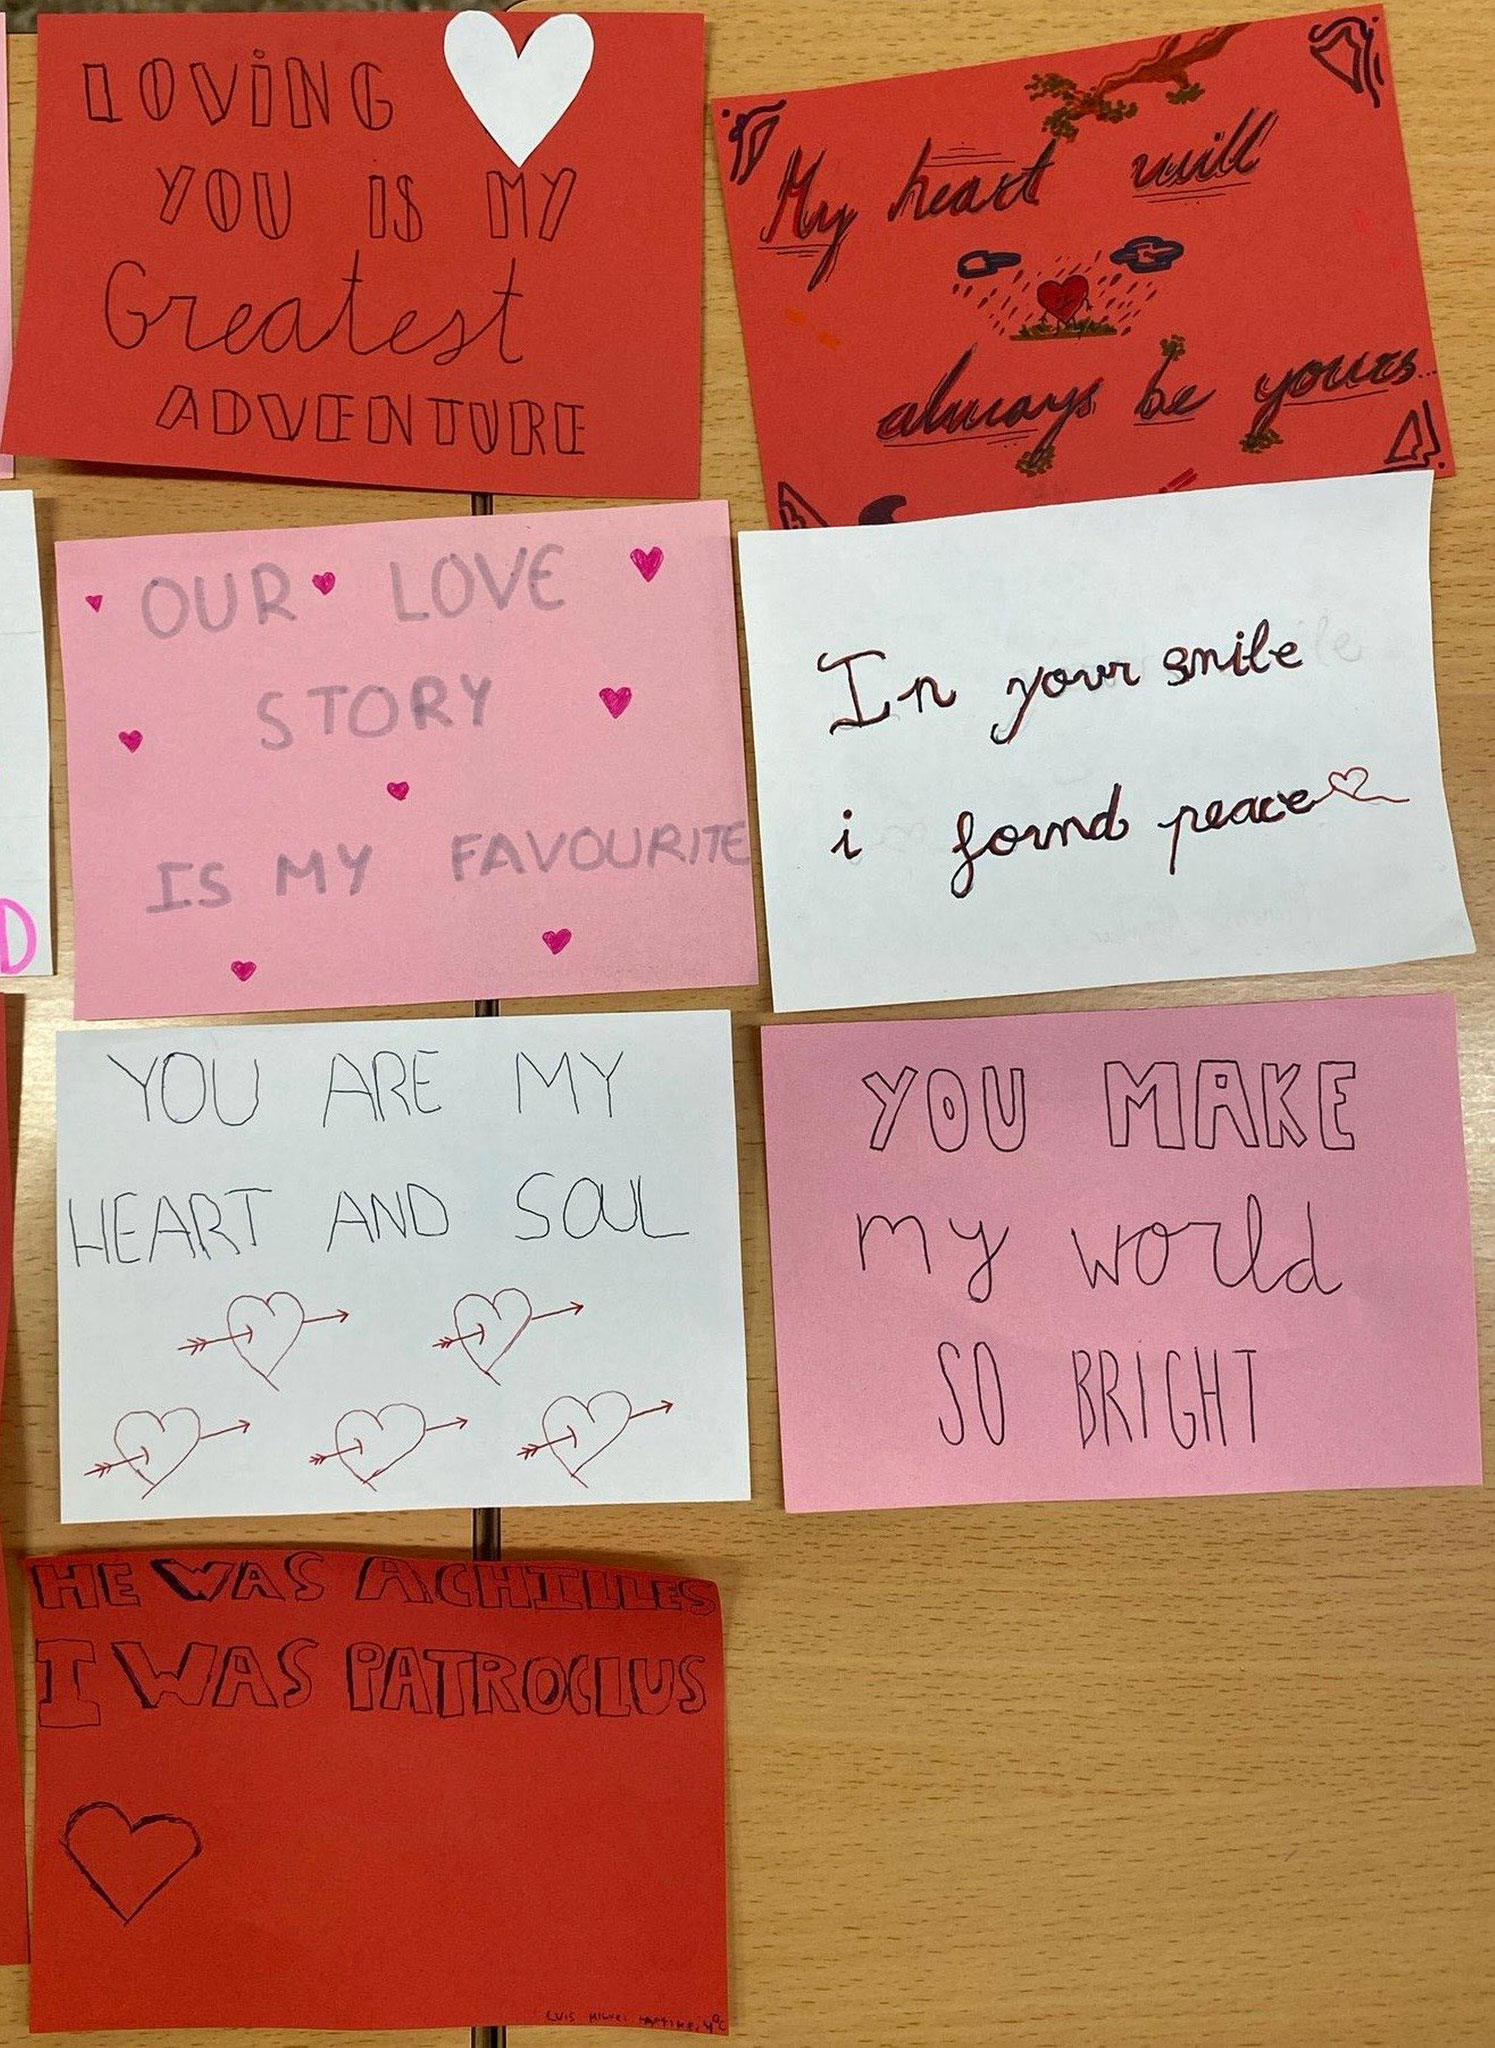 LOVING
YOU IS MY
Greatest
ADVENTURE
My heart will
always be yours...
OUR LOVE
STORY
IS MY FAVOURITE
In your smile
i found peace
D
YOU ARE MY
HEART AND SOUL
YOU MAKE
my world
SO BRIGHT
HE WAS ACHILLES
I WAS PATROCLUS
LUIS MIGUEL 4ºC